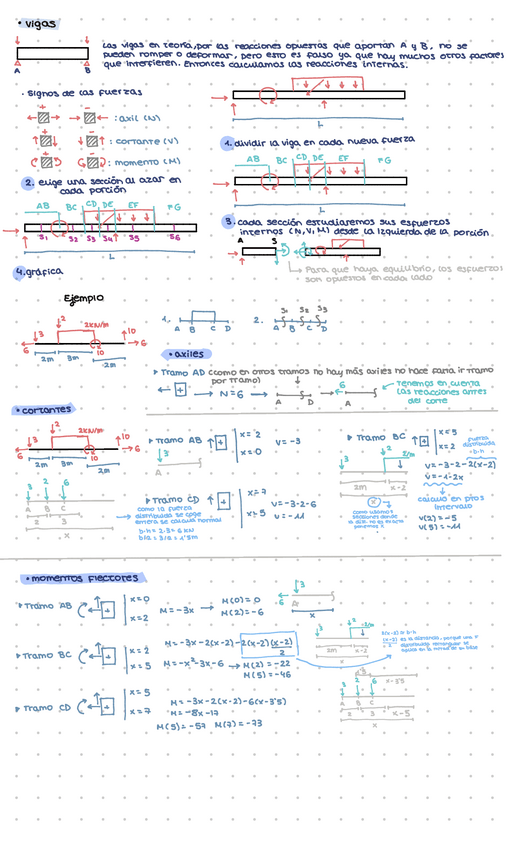 • vigas
Las vigas en teoría, por las reacciones opuestas que aportan A y B, no se
pueden romper o deformar, pero esto es falso ya que hay muchos otros factores
que interfieren. Entonces calculamos las reacciones internas.
A B
· Signos de las fuerzas
: axil (N)
: cortante (V)
: momento (M)
L
1. dividir la viga en cada nueva fuerza
AB BC CD DE EF FG
L
2. elige una sección al azar en
cada porción
AB BC CD DE EF FG
S1 S2 S3 S4 S5 S6
L
3. cada sección estudiaremos sus esfuerzos
internos (N,V,M) desde la izquierda de la porción
A S
Para que haya equilibrio, los esfuerzos
son opuestos en cada lado
4. gráfica
Ejemplo
3 2 2KN/m 10 6
6 10
2m 3m 2m
1. A B C D
2. S1 S2 S3
A B C D
• axiles
Tramo AD (como en otros tramos no hay más axiles no hace falta ir tramo
por tramo)
+ → N=6 → A D → 6 A
Tenemos en cuenta
las reacciones antes
del corte
• cortantes
3 2 2KN/m 10 6
6 10
2m 3m 2m
3 2 6
A B C
2 3
x
Tramo AB + x=2 x=0 V=-3
3
A
Tramo CD + x=7 x=5
V=-3-2-6
V=-11
como la fuerza
distribuida se coge
entera se calcula normal
b·h = 2·3 = 6 KN
b/2 = 3/2 = 1'5m
Tramo BC + x≤5 x=2
fuerza
distribuida
·b·h·
V=-3-2-2(x-2)
V=-1-2x
calculo en ptos
intervalo
V(2)=-5
V(5)=-11
2m x-2
x
• momentos flectores
Tramo AB + x=0 x=2
M=-3x → M(0)=0
M(2)=-6
3
6 A
x
Tramo BC + x=2 x=5
M=-3x-2(x-2)-2(x-2)(x-2)/2
M=-x²-3x-6 → M(2)=-22
M(5)=-46
2m x-2
x
Tramo CD + x=5 x=7
M=-3x-2(x-2)-6(x-3'5)
M=-8x-17
M(5)=-57 M(7)=-73
x-3'5
3 2 6
A B C
2 3 x-5
x